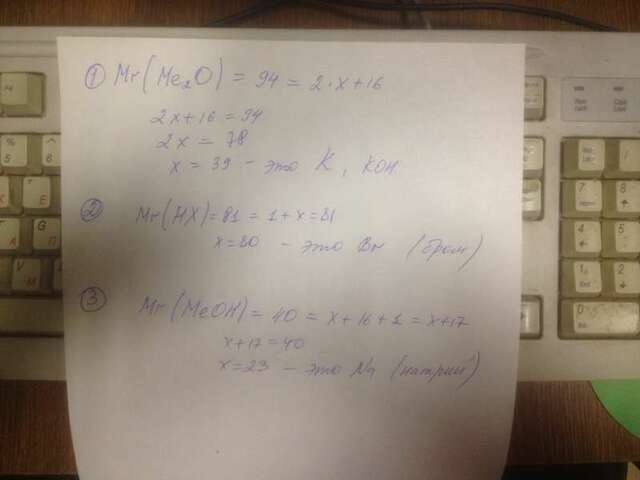 ① Mr(Me₂O) = 94 = 2·x+16
2x+16 = 94
2x = 78
x = 39 - это K, KOH
② Mr(HX)=81 = 1+x=81
x=80 - это Br (бром)
③ Mr(MeOH)= 40 = x+16+1 = x+17
x+17=40
x=23 - это Na (натрий)